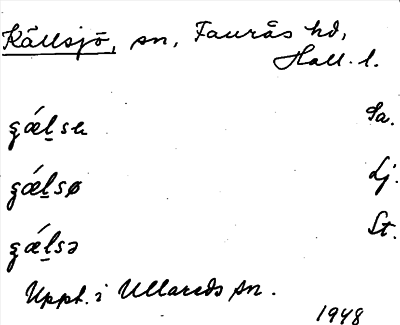 Källsjö, sn, Faurås hd,
Hall. l.
ɕǽḻsɐ Sa.
ɕǽḻsø Lj.
ɕǽḻsə St.
Uppt. i Ullareds sn.
1948